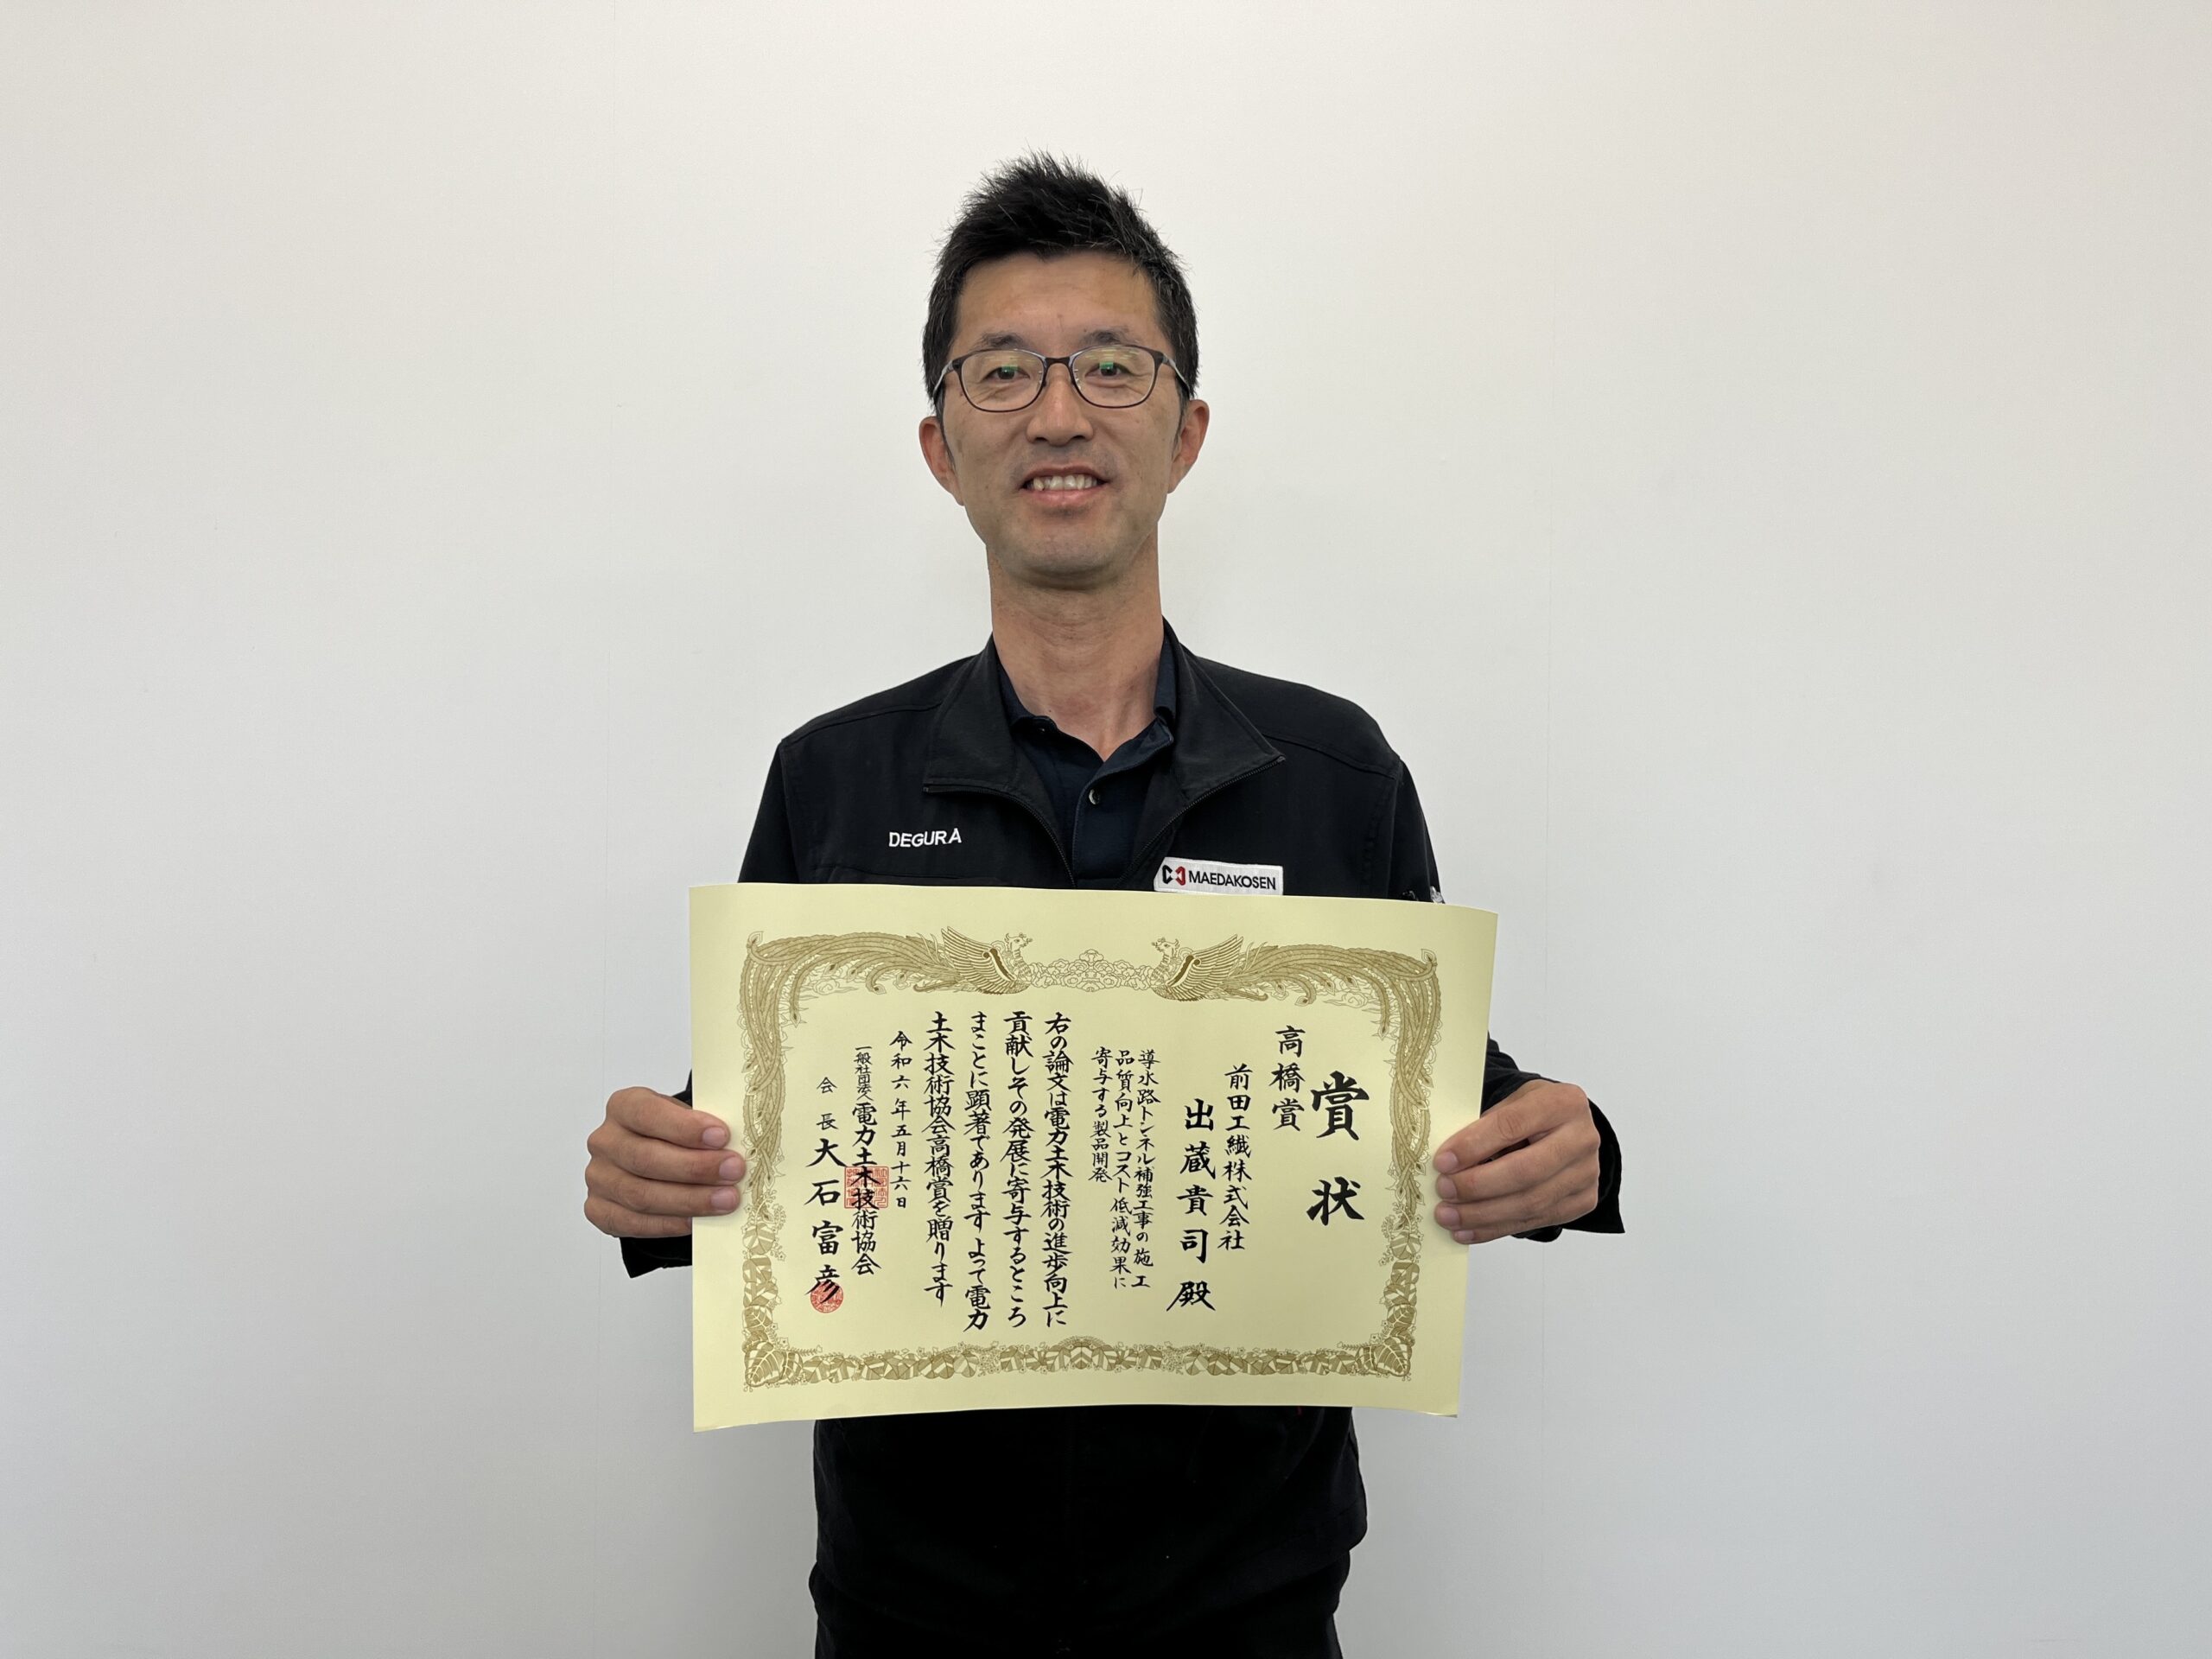 DEGURA
MAEDAKOSEN
賞状
高橋賞
前田工繊株式会社
出蔵貴司殿
導水路トンネル補強工事の施工
品質向上とコスト低減効果に
寄与する製品開発
右の論文は電力土木技術の進歩向上に
貢献しその発展に寄与するところ
まことに顕著であります よって電力
土木技術協会高橋賞を贈ります
令和六年五月十六日
一般社団法人電力土木技術協会
会長大石富彦